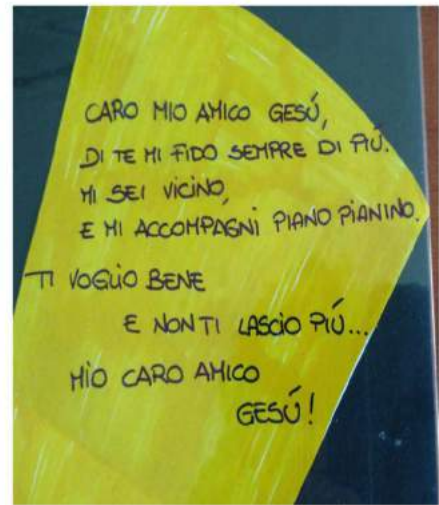 CARO MIO AMICO GESÚ,
DI TE MI FIDO SEMPRE DI PIÚ.
MI SEI VICINO,
E MI ACCOMPAGNI PIANO PIANINO.
TI VOGLIO BENE
E NON TI LASCIO PIÚ...
MIO CARO AMICO
GESÚ!